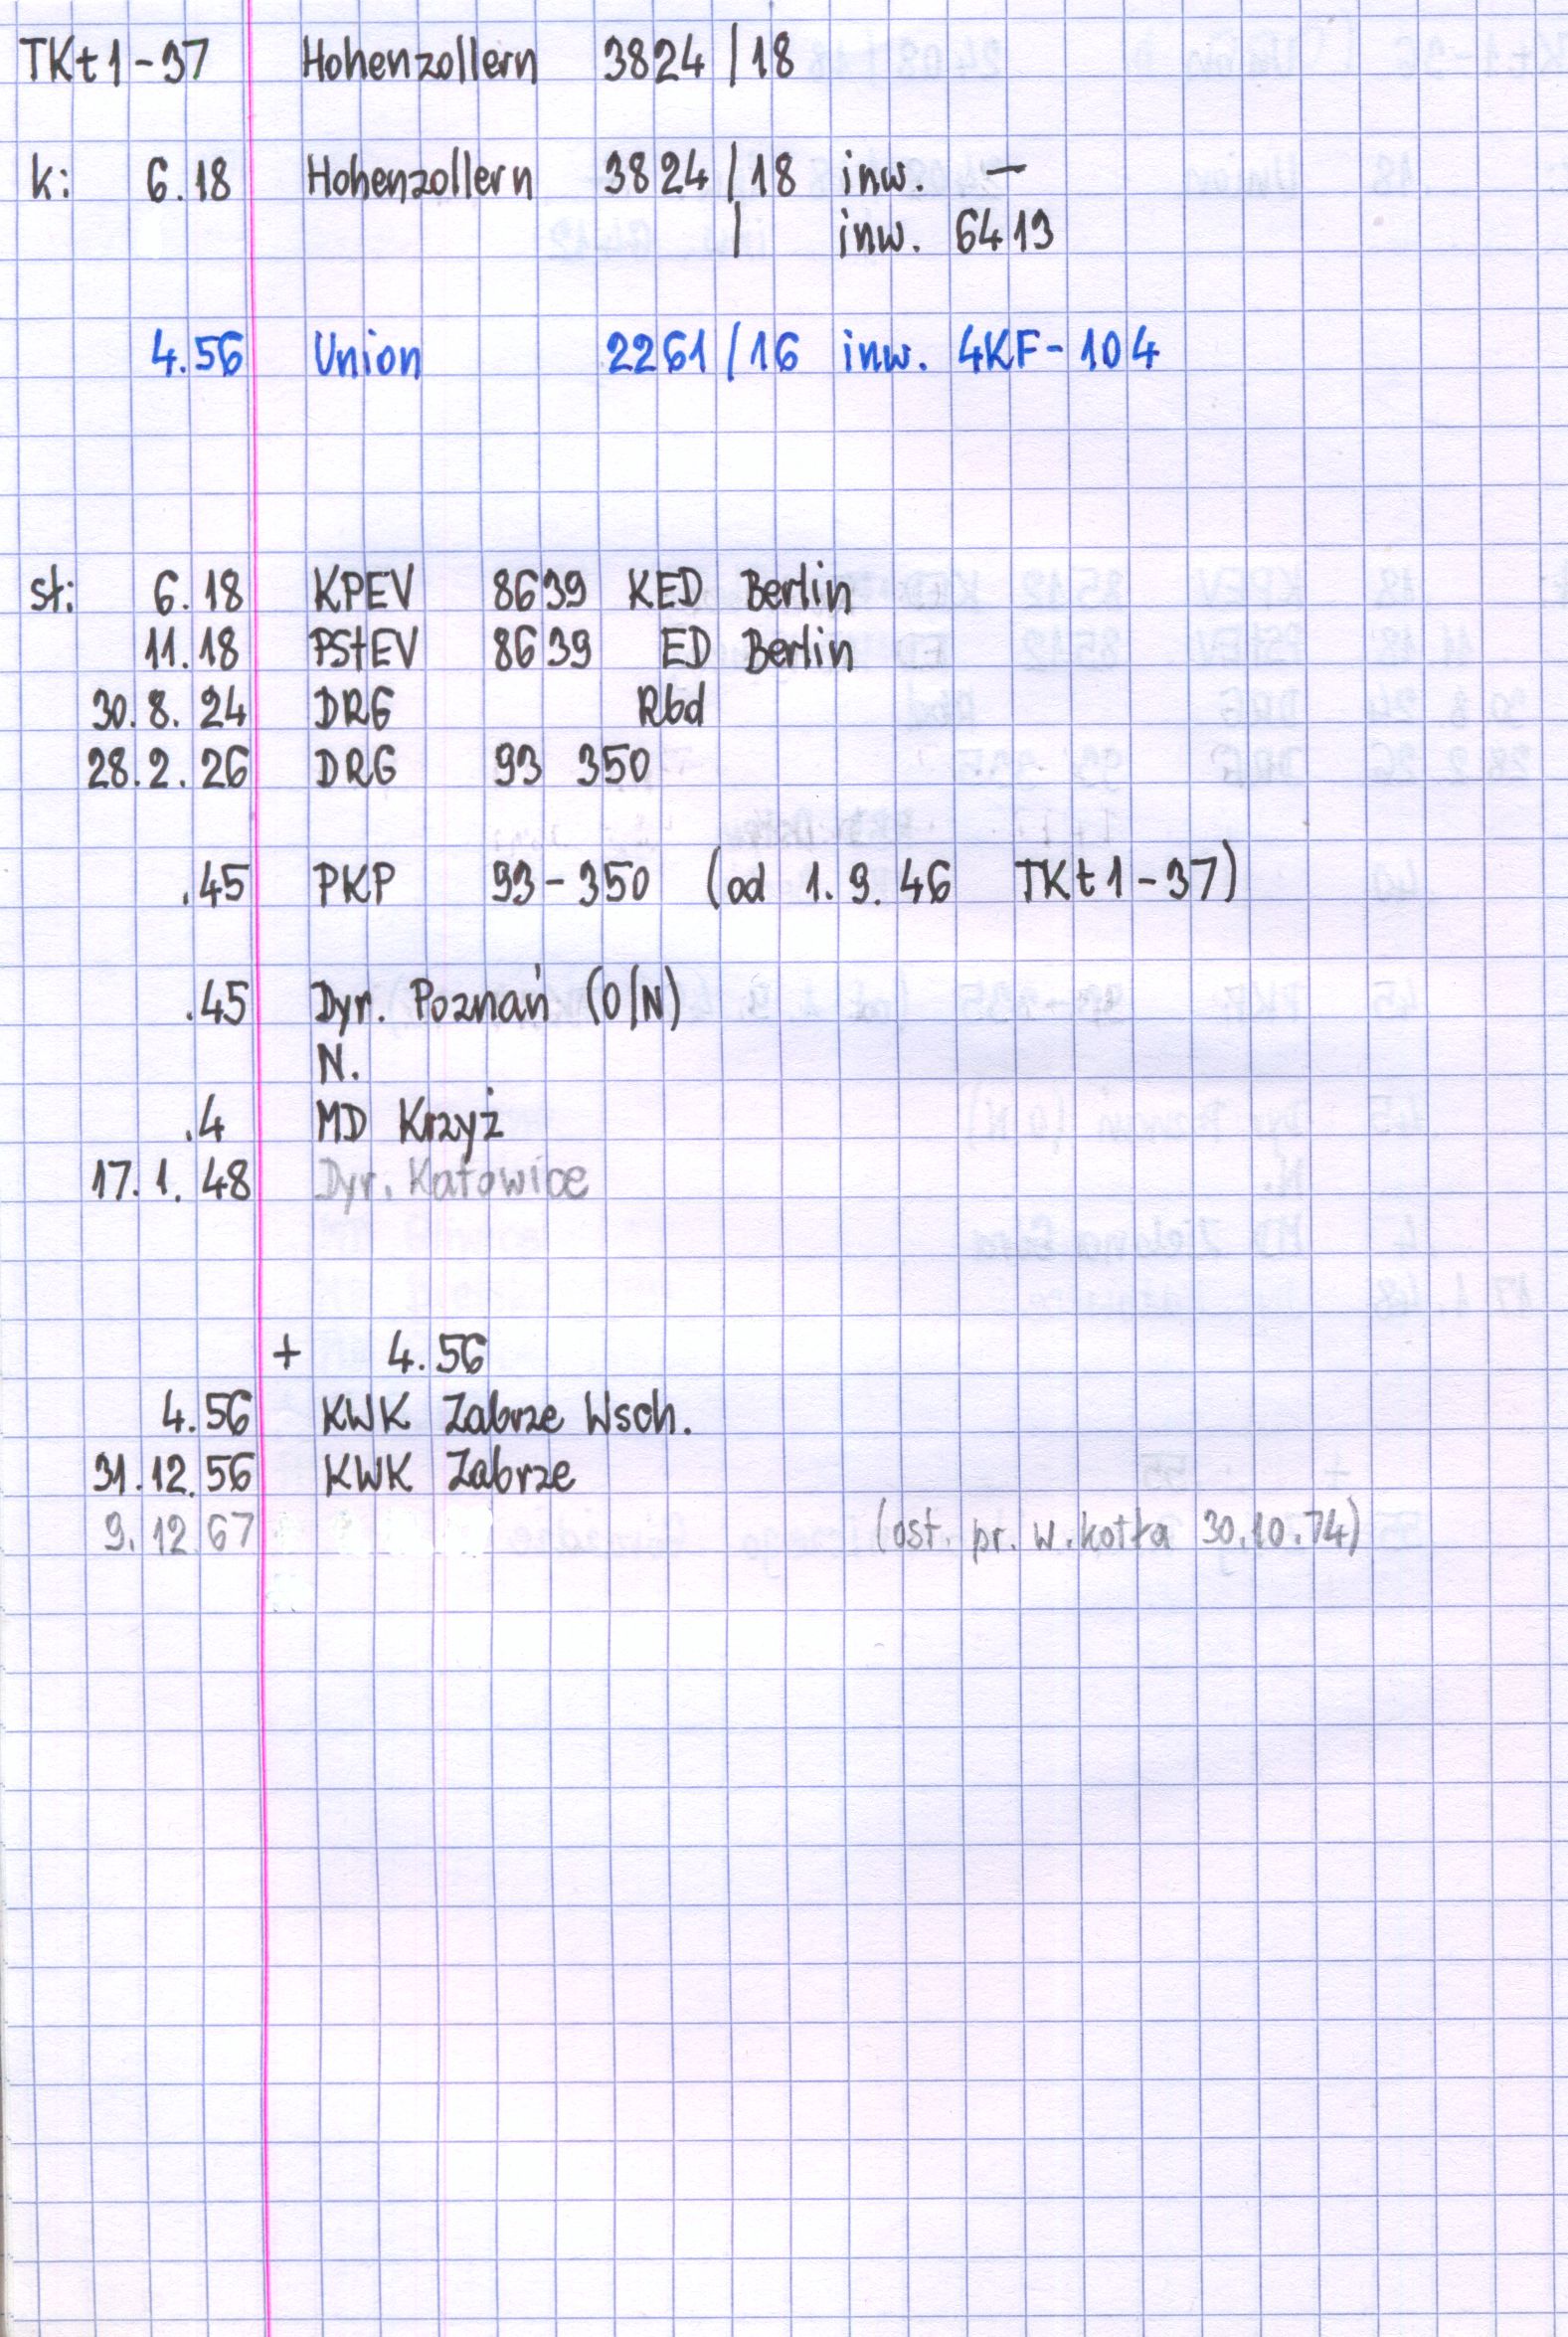 TKt1-37 Hohenzollern 3824/18
k: 6.18 Hohenzollern 3824/18 inw. —
/ inw. 6413
4.56 Union 2261/16 inw. 4KF-104
st: 6.18 KPEV 8639 KED Berlin
11.18 PStEV 8639 ED Berlin
30.8.24 DRG Rbd
28.2.26 DRG 93 350
.45 PKP 93-350 (od 1.9.46 TKt1-37)
.45 Dyr. Poznań (O/N)
N.
.4 MD Krzyż
17.1.48 Dyr. Katowice
+ 4.56
4.56 KWK Zabrze Wsch.
31.12.56 KWK Zabrze
9.12.67 (ost. pr. w. kotła 30.10.74)